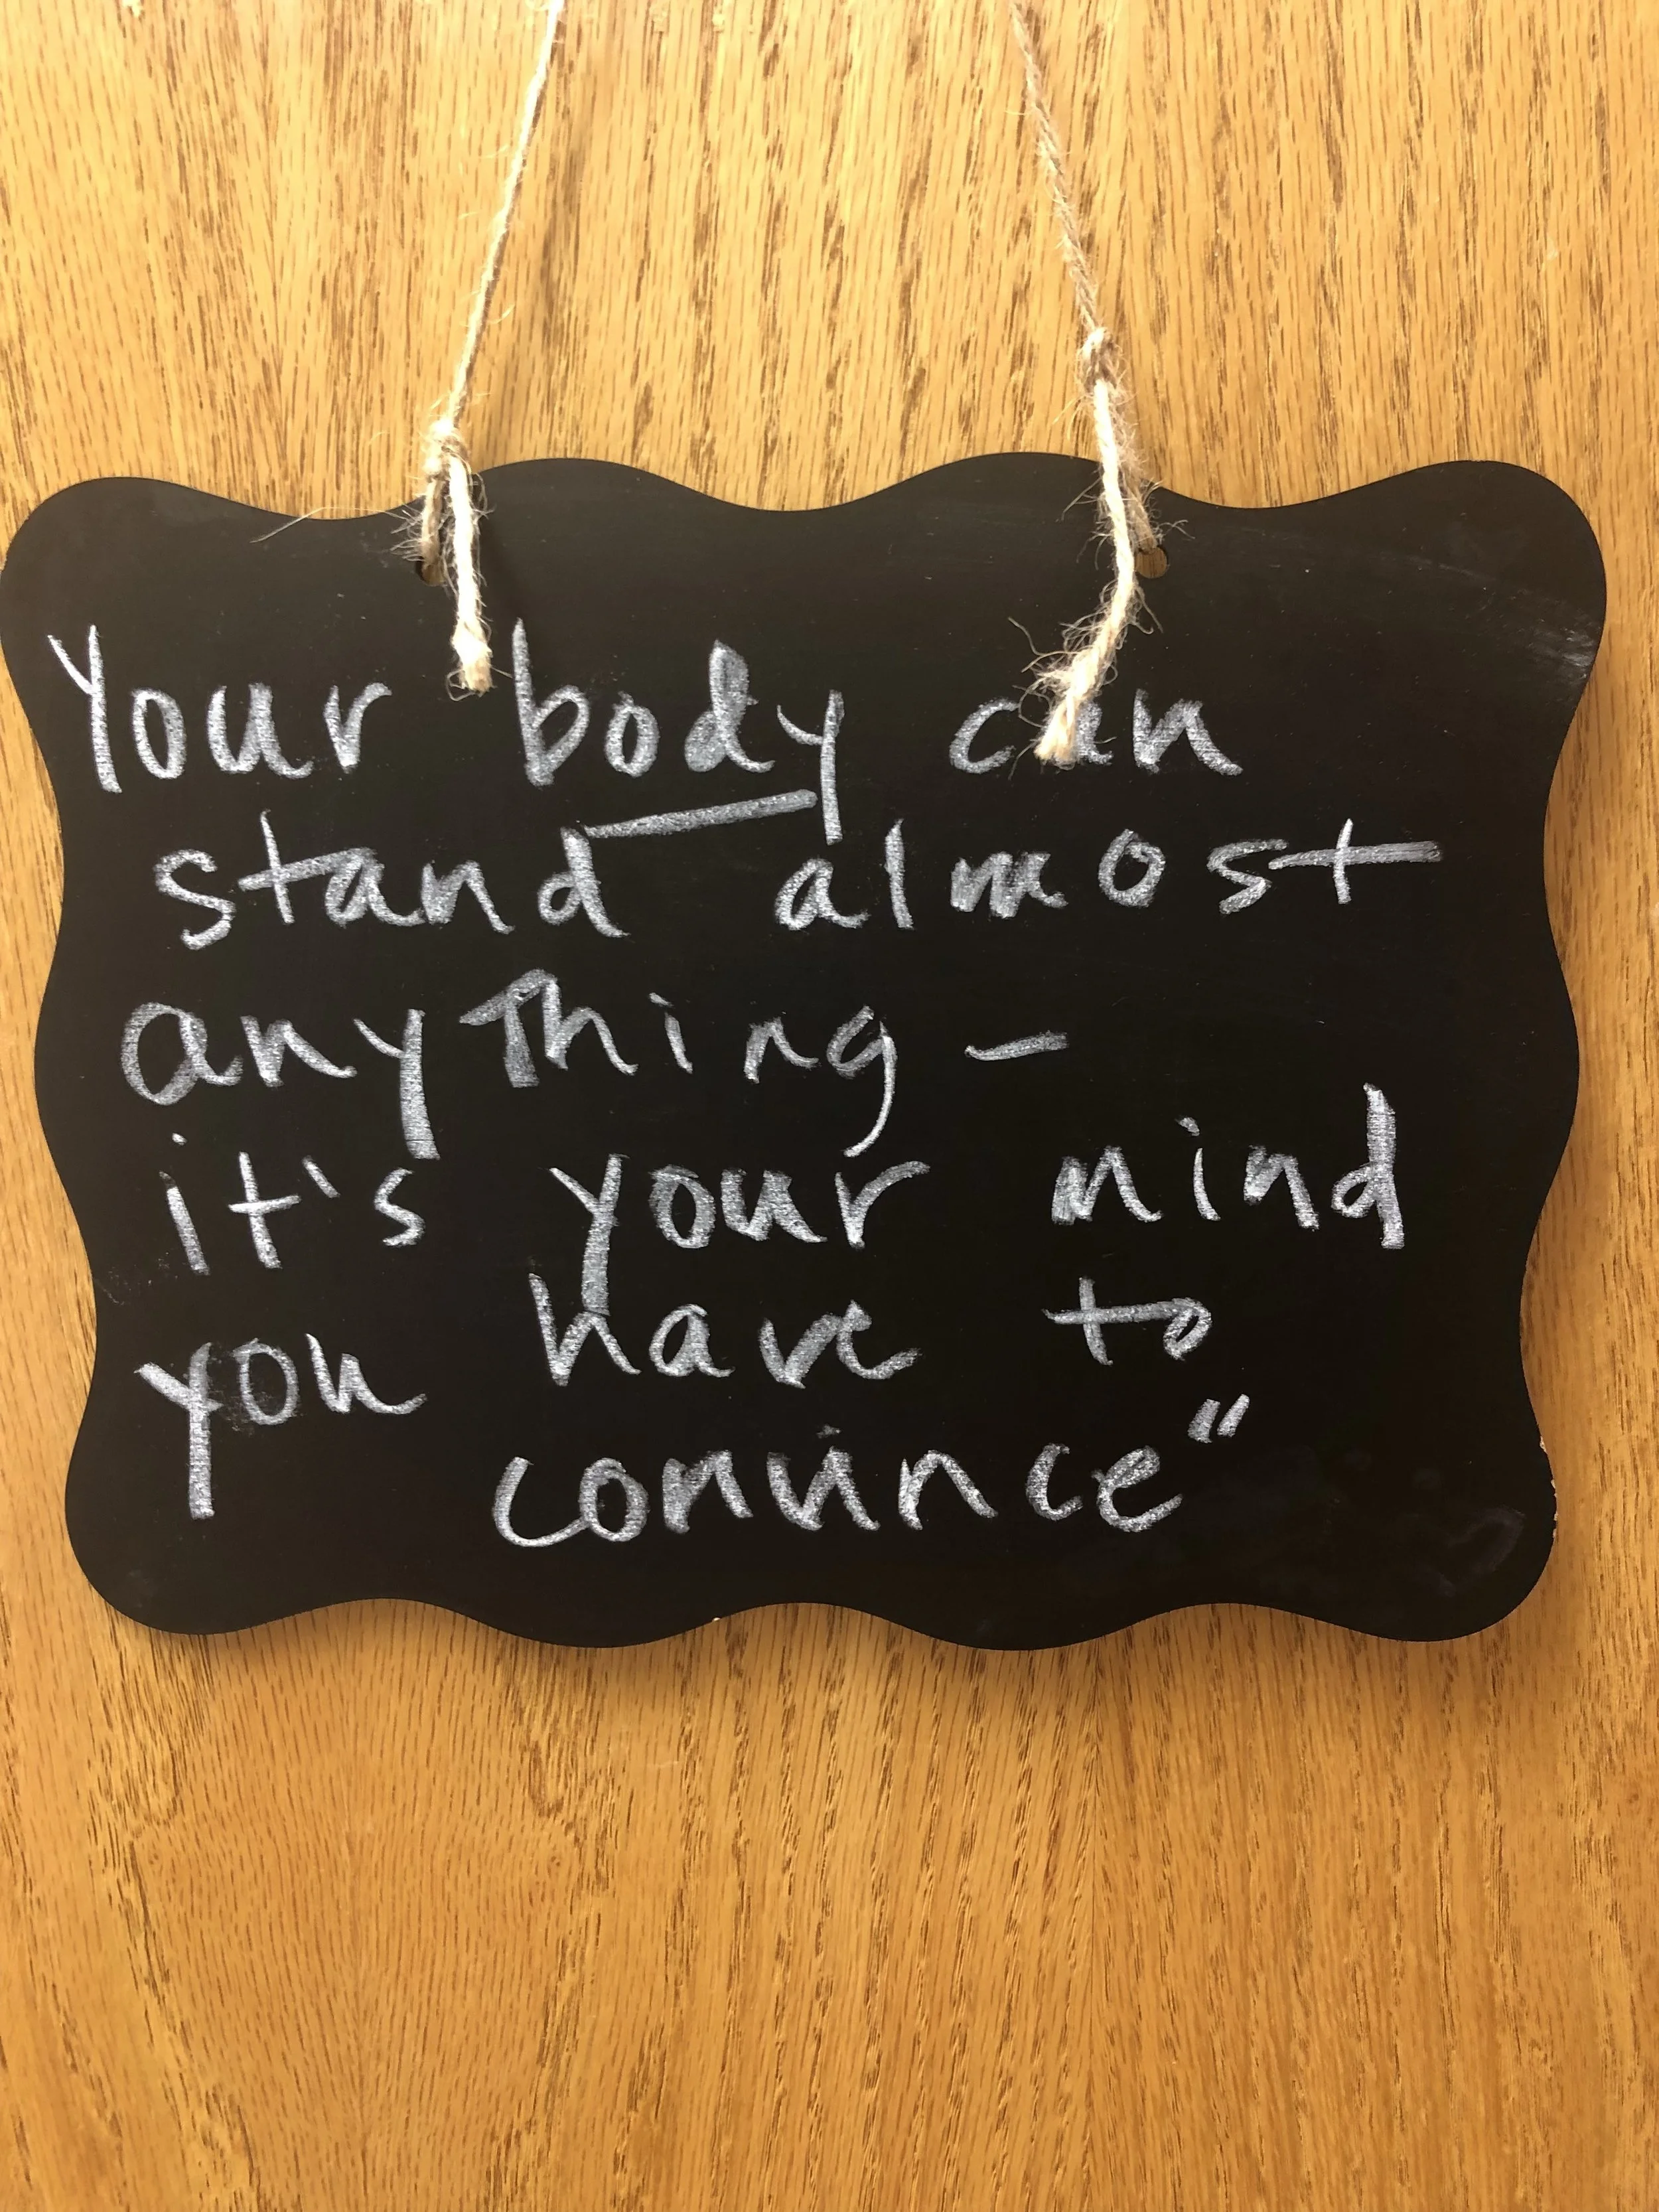 Your body can
stand almost
anything –
it's your mind
you have to
convince"